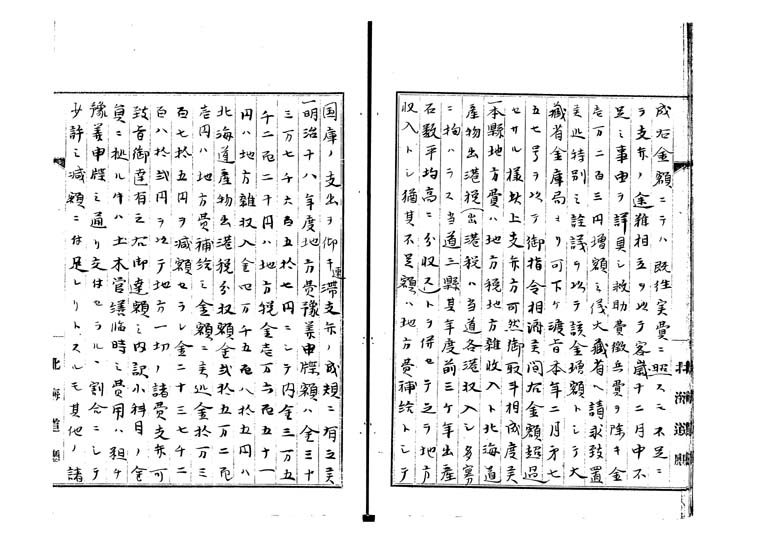 成右金額ニテハ既往実費ニ照スニ不足ニ
テ支弁ノ途難相立ヲ以テ客歳十二月中不
足ニ事由ヲ詳具シ救助費徴兵費ヲ除キ金
壱万二百三円増額之儀大蔵省ヘ請求致置
候処特別之詮議ヲ以テ該金増額トシテ大
蔵省金庫局ヨリ可下ケ渡旨本年二月第七
五七号ヲ以テ御指令相済候間右金額超過
セサル様致上支弁方可然御取斗相成度候
一本縣地方費ハ地方税地方雑収入ト北海道
産物出港税(出港税ハ当道各港収入ノ多寡
ニ拘ハラス当道三縣其年度前三ケ年出産
石数平均高ニ分収ス)トヲ併セテ之ヲ地方
収入トシ猶其不足額ハ地方費補給トシテ
国庫ノ支出ヲ仰キ速滞支弁ノ成規ニ有之候
一明治十八年度地方費豫算申牒額ハ金三十
三万七千六百五拾七円ニシテ内金三万五
千二百二十円ハ地方税金壱万六百五十一
円ハ地方雑収入金四万千五百八拾五円ハ
北海道産物出港税分収額金弐拾五万二百
壱円ハ地方費補給之金額ニ候処金拾万三
百七拾五円ヲ減額セラレ金二十三万七千二
百八拾弐円ヲ以テ地方一切ノ諸費支弁可
致旨御達有之右御達額之内訳小科目ノ金
員ニ拠レハ土木営繕臨時之費用ハ粗々
豫算申牒之通リ交付セラルヽ割合ニシテ
少許之減額ニ付足レリトスルモ其他ノ諸
北海道廳